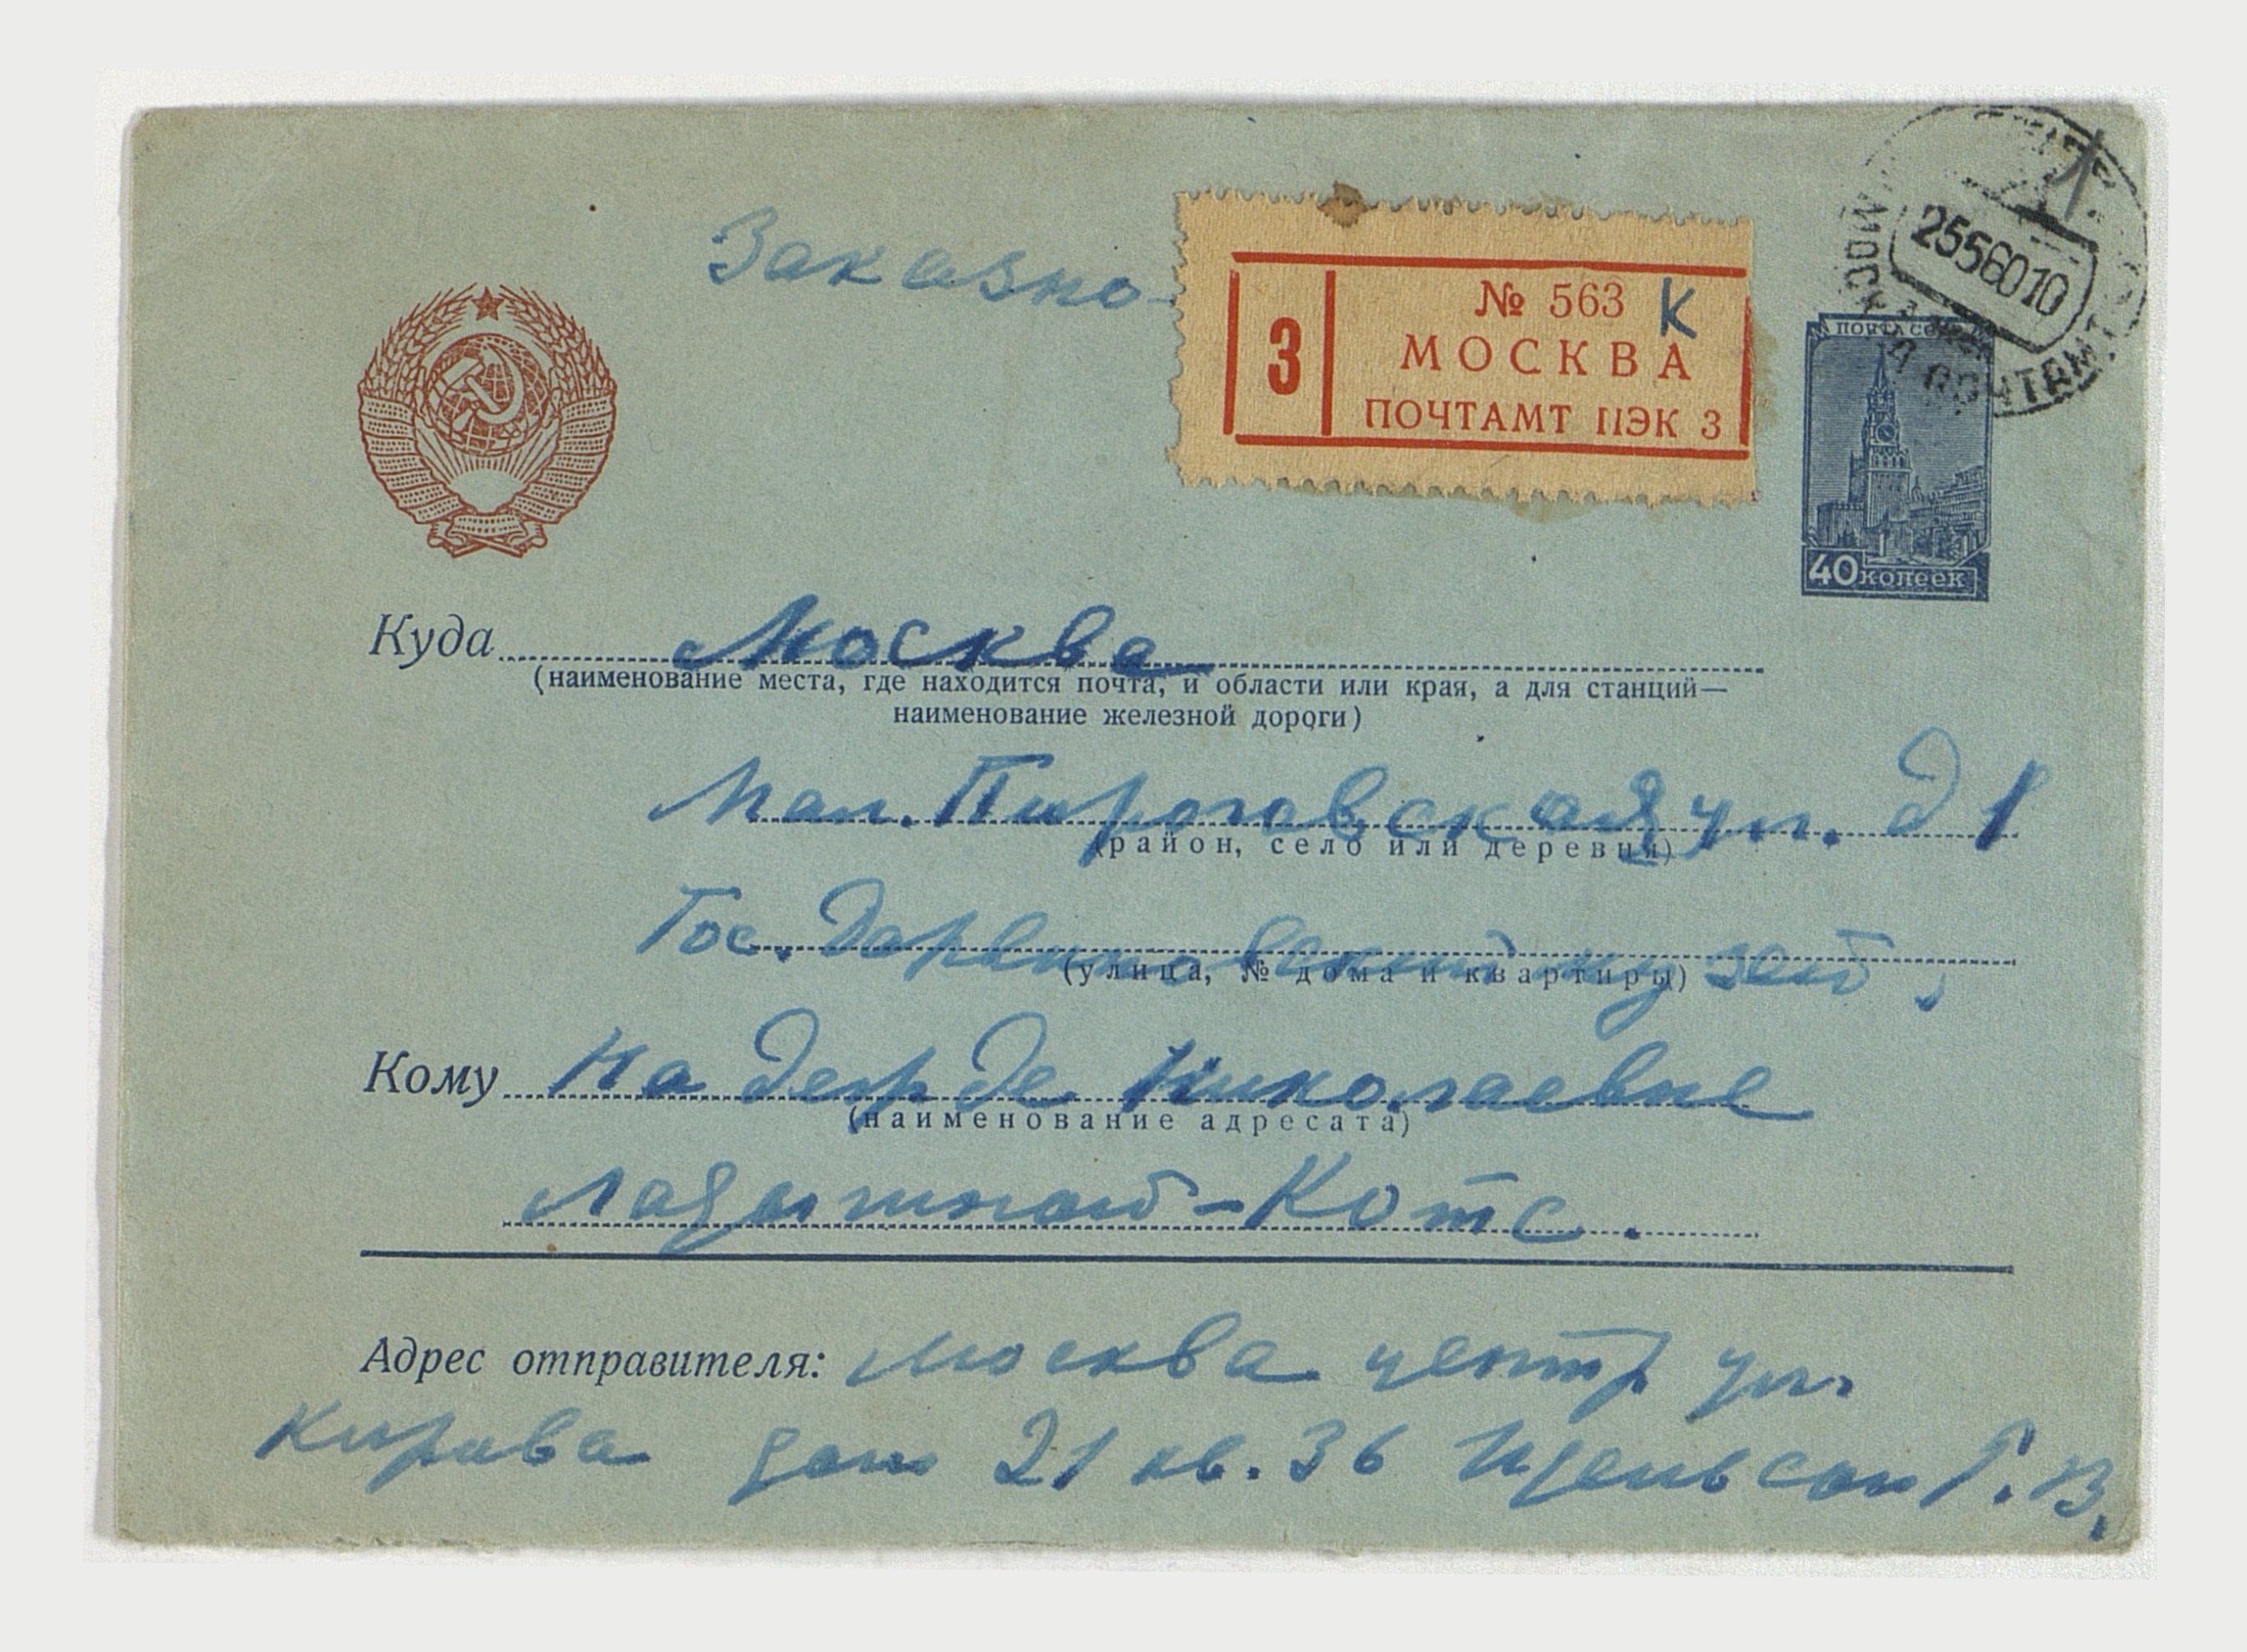 Заказно-
№ 563 К
З
МОСКВА
ПОЧТАМТ ПЭК 3
2556010
МОСКВА ПОЧТАМТ
ПОЧТА СССР
40 копеек
Куда Москва
(наименование места, где находится почта, и области или края, а для станций—
наименование железной дороги)
Мал. Пироговская ул. д 1
(район, село или деревня)
Гос. Дарвиновский музей,
(улица, № дома и квартиры)
Кому Надежде Николаевне
(наименование адресата)
Ладыгиной-Котс.
Адрес отправителя: Москва центр ул.
Кирова дом 21 кв. 36 Г. В.